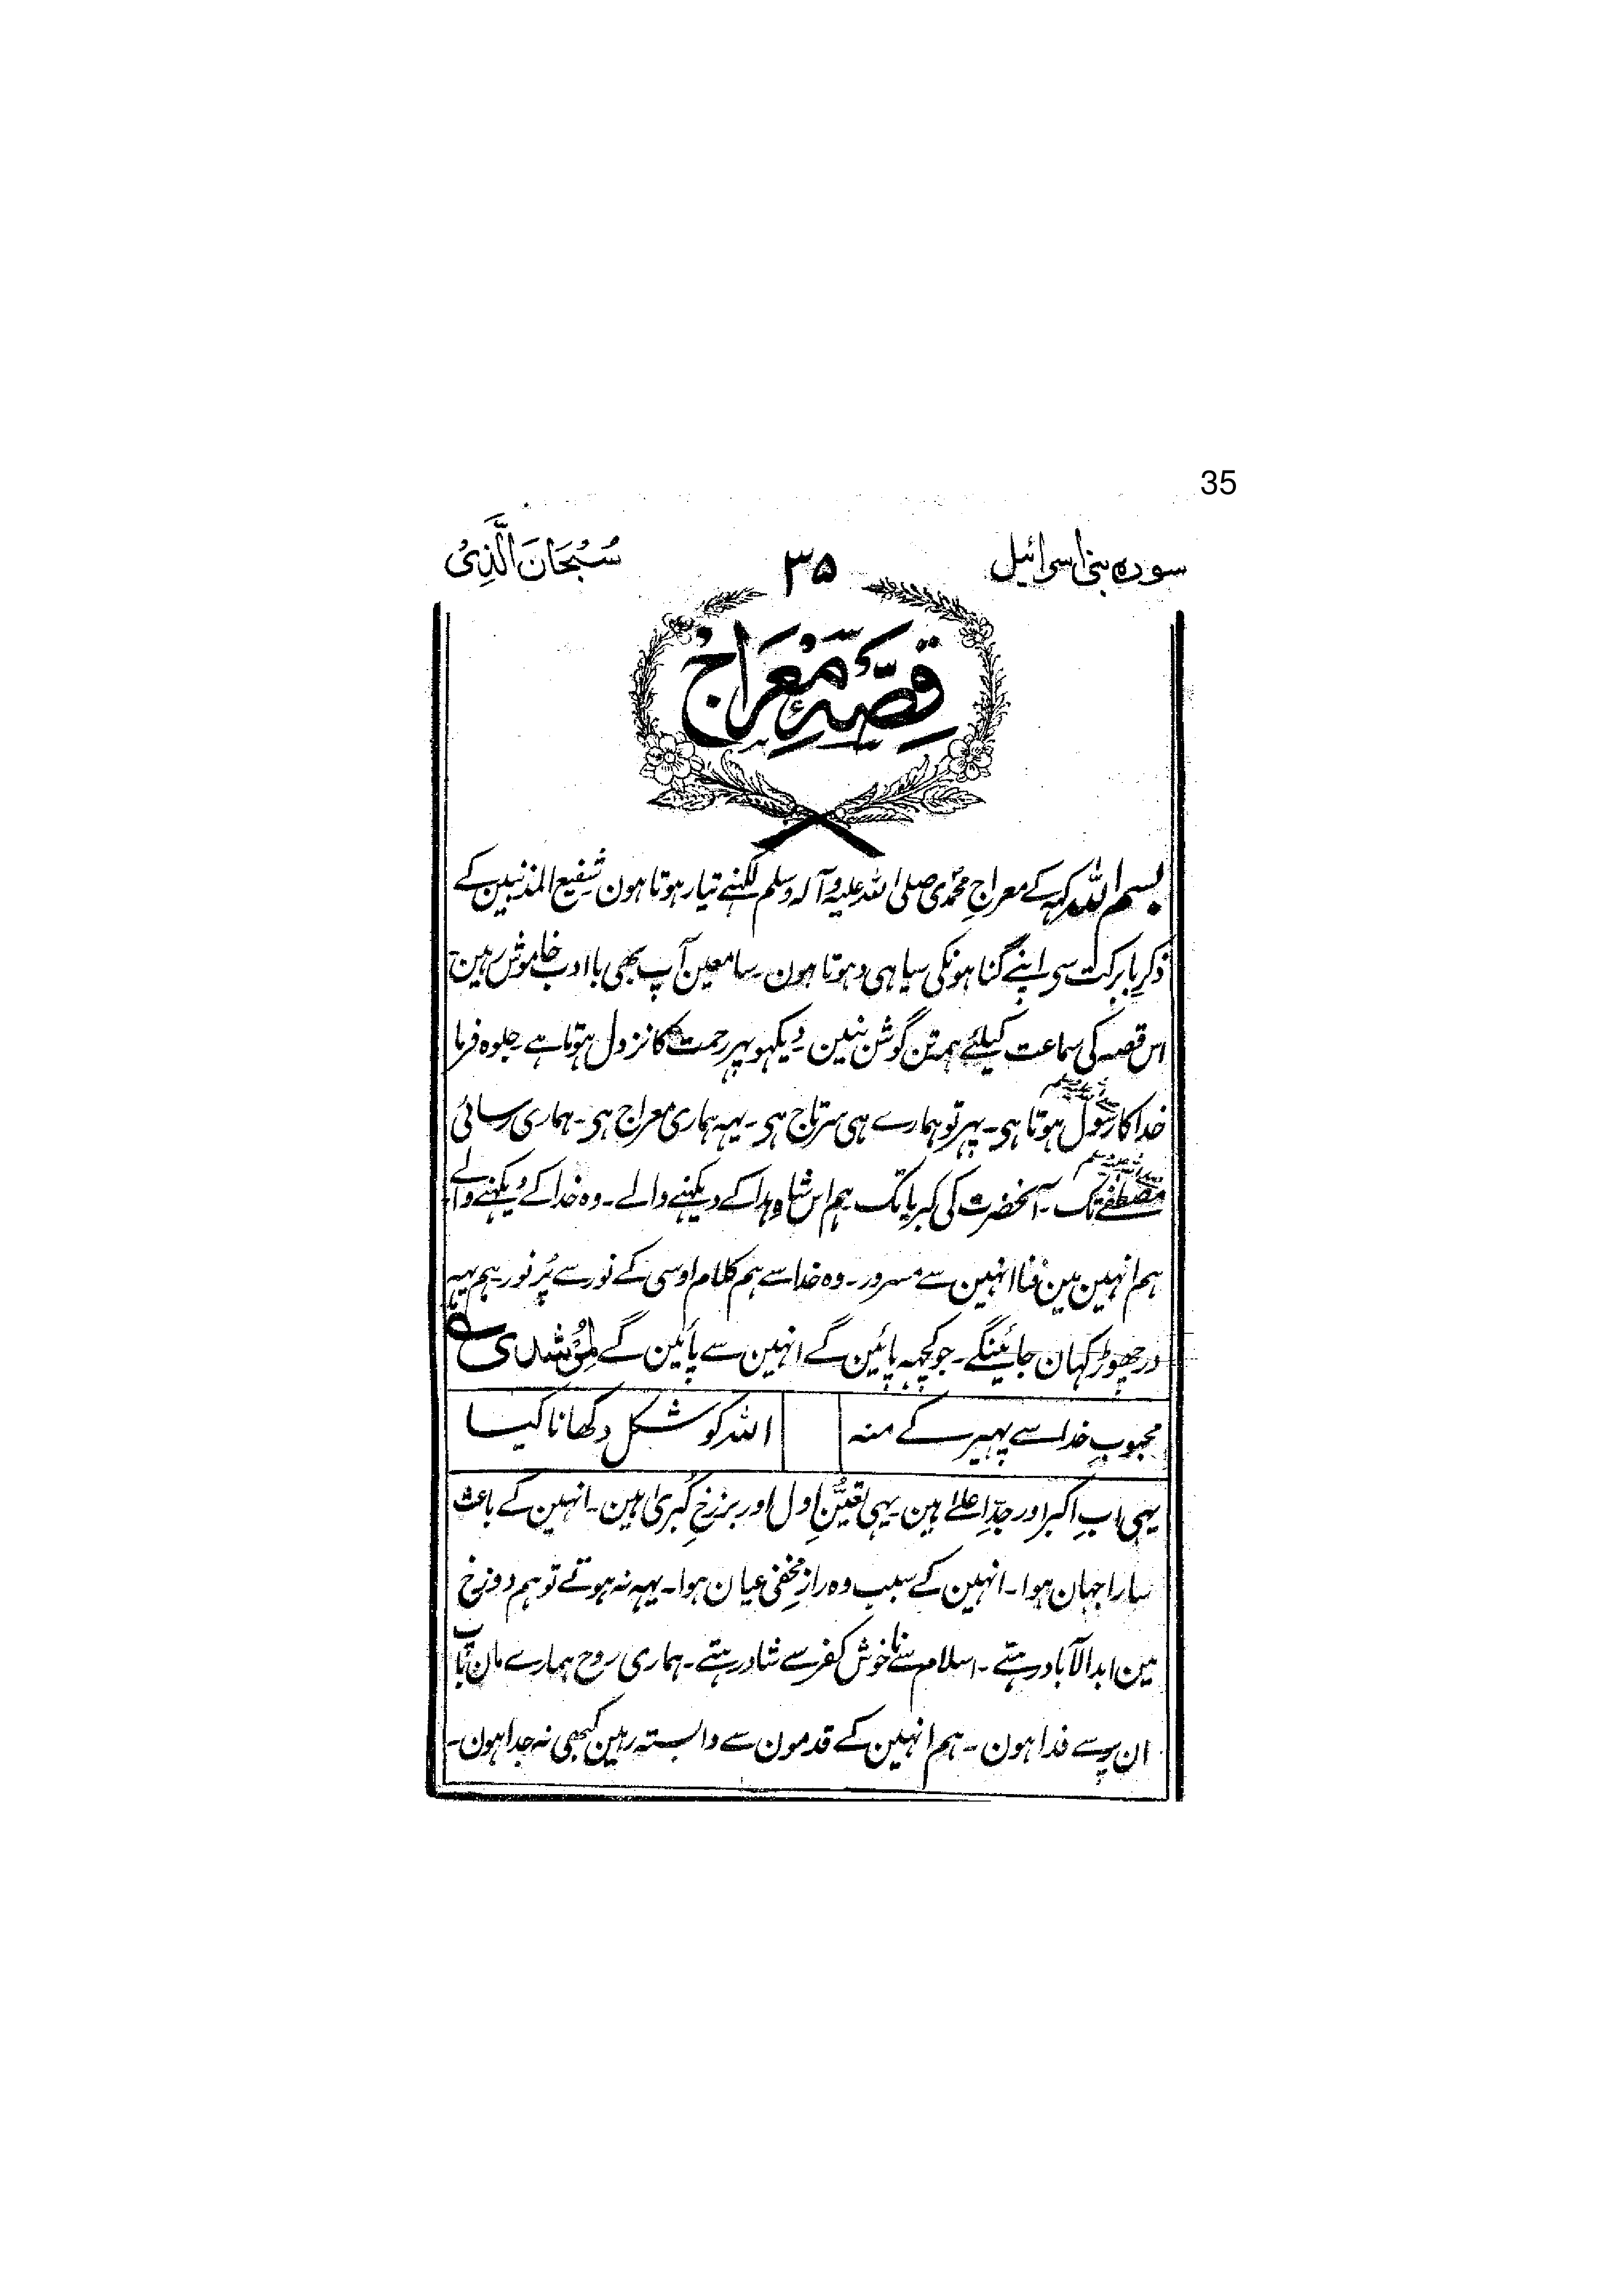 35
سوره بنی اسرائیل
۳۵
سُبْحَانَ الَّذِیْ
قِصَّہِ مِعْرَاجْ
بسم اللہ کہہ کے معراجِ محمدی صلی اللہ علیہ و آلہ وسلم لکہنے تیار ہوتا ہون شفیع المذنبین کے
ذکرِ بابرکت سی اپنے گناہونکی سیاہی دہوتا ہون ۔ سامعین آپ بھی باادب خاموش رہین
اس قصہ کی سماعت کیلئے ہمہ تن گوش بنین ۔ دیکہو پہر رحمت کا نزول ہوتا ہے ۔ جلوہ فرما
خدا کا رسول ہوتا ہی ۔ پہر تو ہمارے ہی سرتاج ہی ۔ یہہ ہماری معراج ہی ۔ ہماری رسائی
مصطفےٰ تک ۔ آنحضرت کی کبریا تک ہم اس شاہِ ہدا کے دیکہنے والے ۔ وہ خدا کے دیکہنے والے
ہم انہین مین فنا انہین سے مسرور ۔ وہ خدا سے ہم کلام اوسی کے نور سے پُر نور ۔ ہم یہہ
در چھوڑ کہان جائینگے ۔ جو کچہہ پائین گے انہین سے پائین گے لِمُرْشدی
محبوبِ خدا سے پہیر کے منہ
اللہ کو شکل دکھانا کیا
یہی ابِ اکبر اور جدِّ اعلےٰ ہین ۔ یہی تعیُّنِ اول اور برزخِ کُبریٰ ہین ۔ انہین کے باعث
سارا جہان ہوا ۔ انہین کے سبب وہ رازِ مخفی عیان ہوا ۔ یہہ نہ ہوتے تو ہم دوزخ
مین ابدالآباد رہتے ۔ اسلام سے ناخوش کفر سے شاد رہتے ۔ ہماری روح ہمارے مان باپ
ان پر سے فدا ہون ۔ ہم انہین کے قدمون سے وابستہ رہین کبھی نہ جدا ہون ۔